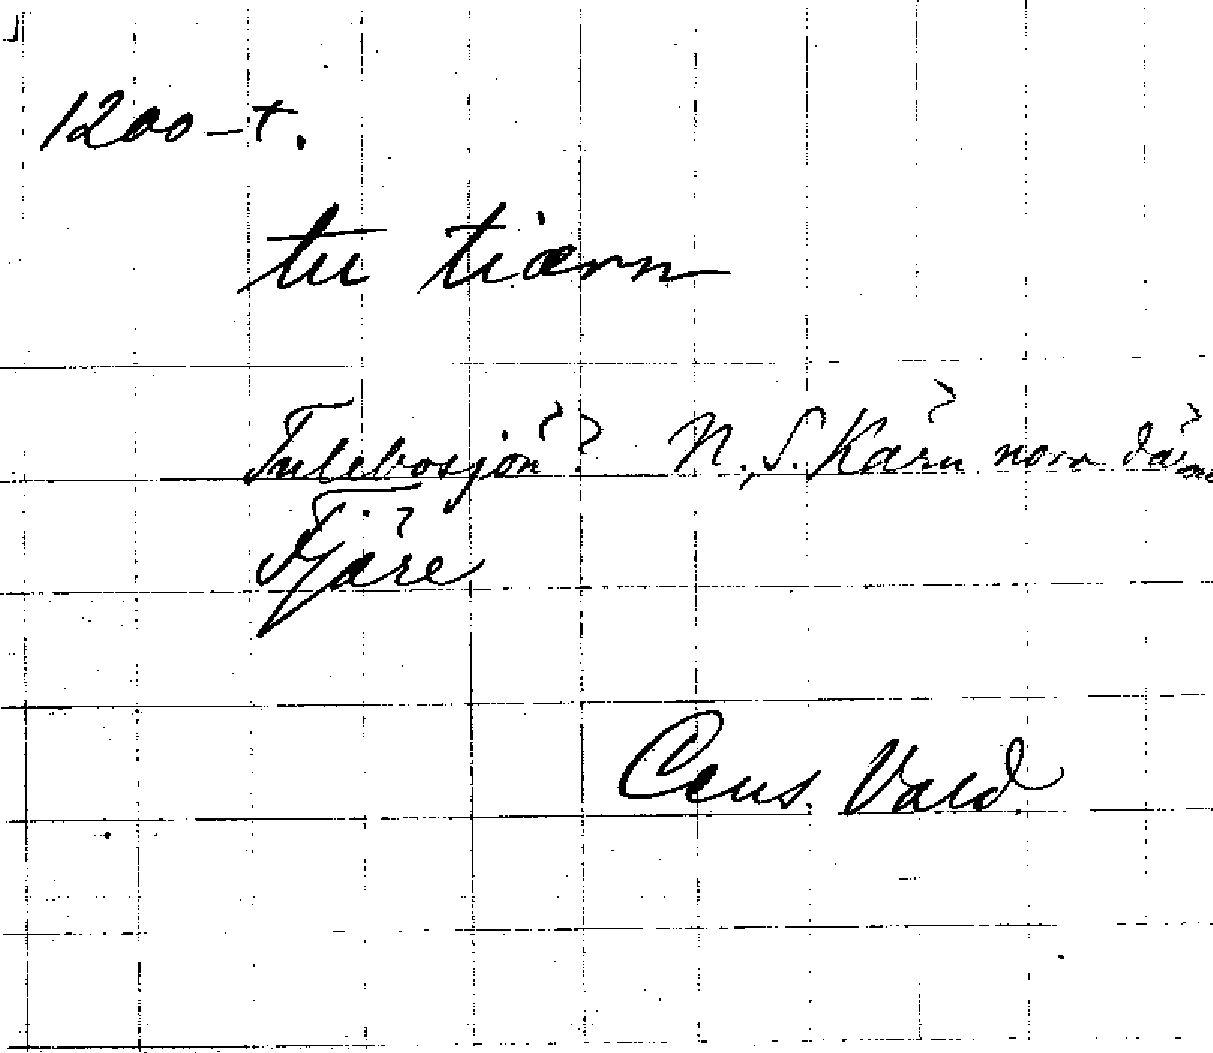 1200-t.
tu tiærn
Tulebosjön?? N., S. Kärn norr där
Fjäre
Cens. Vald.